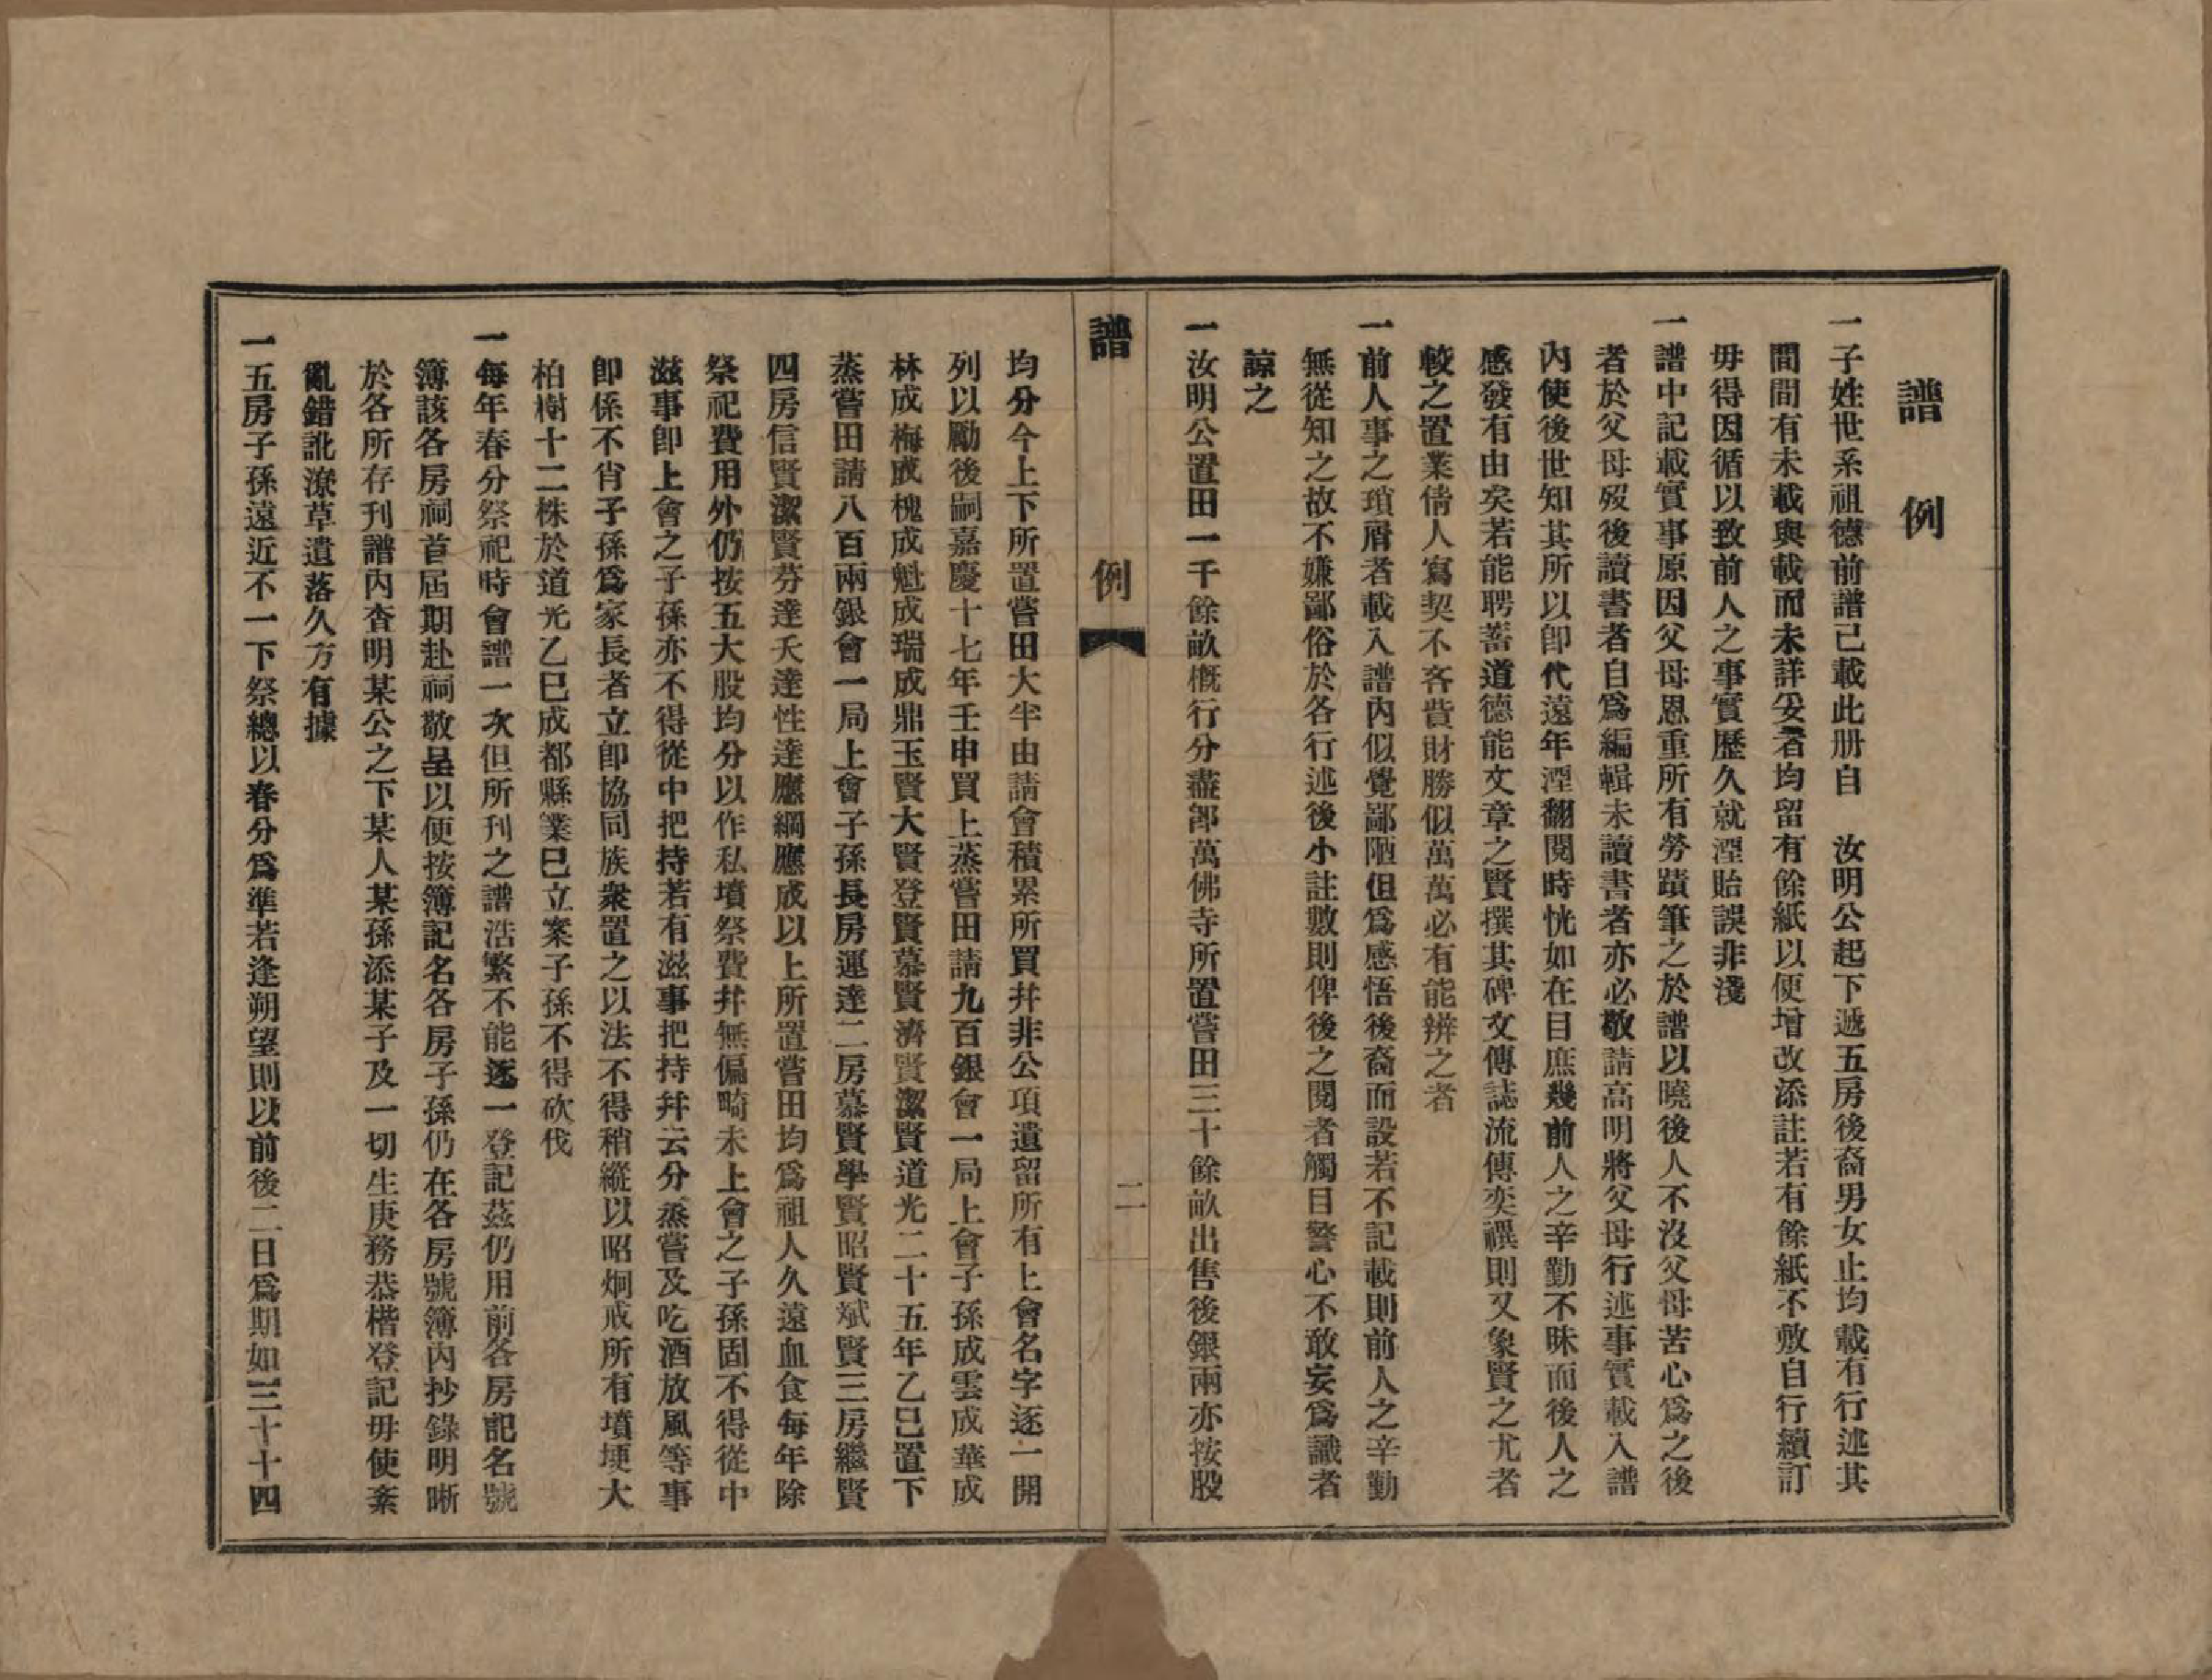 譜例
一子姓世系祖德前譜已載此册自　汝明公起下遞五房後裔男女止均載有行述其
間間有未載與載而未詳妥者均留有餘紙以便增改添註若有餘紙不敷自行續訂
毋得因循以致前人之事實歷久就湮貽誤非淺
一譜中記載實事原因父母恩重所有勞蹟筆之於譜以曉後人不沒父母苦心爲之後
者於父母歿後讀書者自爲編輯未讀書者亦必敬請高明將父母行述事實載入譜
內使後世知其所以卽代遠年湮翻閱時恍如在目庶幾前人之辛勤不昧而後人之
感發有由矣若能聘蓄道德能文章之賢撰其碑文傳誌流傳奕禩則又象賢之尤者
較之置業倩人寫契不吝貲財勝似萬萬必有能辨之者
一前人事之瑣屑者載入譜內似覺鄙陋但爲感悟後裔而設若不記載則前人之辛勤
無從知之故不嫌鄙俗於各行述後小註數則俾後之閱者觸目警心不敢妄爲識者
諒之
一汝明公置田一千餘畝槪行分盡郫萬佛寺所置嘗田三十餘畝出售後銀兩亦按股
譜例
二
均分今上下所置嘗田大半由請會積累所買幷非公項遺留所有上會名字逐一開
列以勵後嗣嘉慶十七年壬申買上蒸嘗田請九百銀會一局上會子孫成雲成華成
林成梅成槐成魁成瑞成鼎玉賢大賢登賢慕賢濟賢潔賢道光二十五年乙巳置下
蒸嘗田請八百兩銀會一局上會子孫長房運達二房慕賢學賢昭賢斌賢三房繼賢
四房信賢潔賢芬達天達性達應綱應成以上所置嘗田均爲祖人久遠血食每年除
祭祀費用外仍按五大股均分以作私墳祭費幷無偏畸未上會之子孫固不得從中
滋事卽上會之子孫亦不得從中把持若有滋事把持幷云分蒸嘗及吃酒放風等事
卽係不肖子孫爲家長者立卽協同族衆置之以法不得稍縱以昭炯戒所有墳埂大
柏樹十二株於道光乙巳成都縣業已立案子孫不得砍伐
一每年春分祭祀時會譜一次但所刊之譜浩繁不能逐一登記茲仍用前各房記名號
簿該各房祠首屆期赴祠敬呈以便按簿記名各房子孫仍在各房號簿內抄錄明晰
於各所存刊譜內查明某公之下某人某孫添某子及一切生庚務恭楷登記毋使紊
亂錯訛潦草遺落久方有據
一五房子孫遠近不一下祭總以春分爲準若逢朔望則以前後二日爲期如三十十四